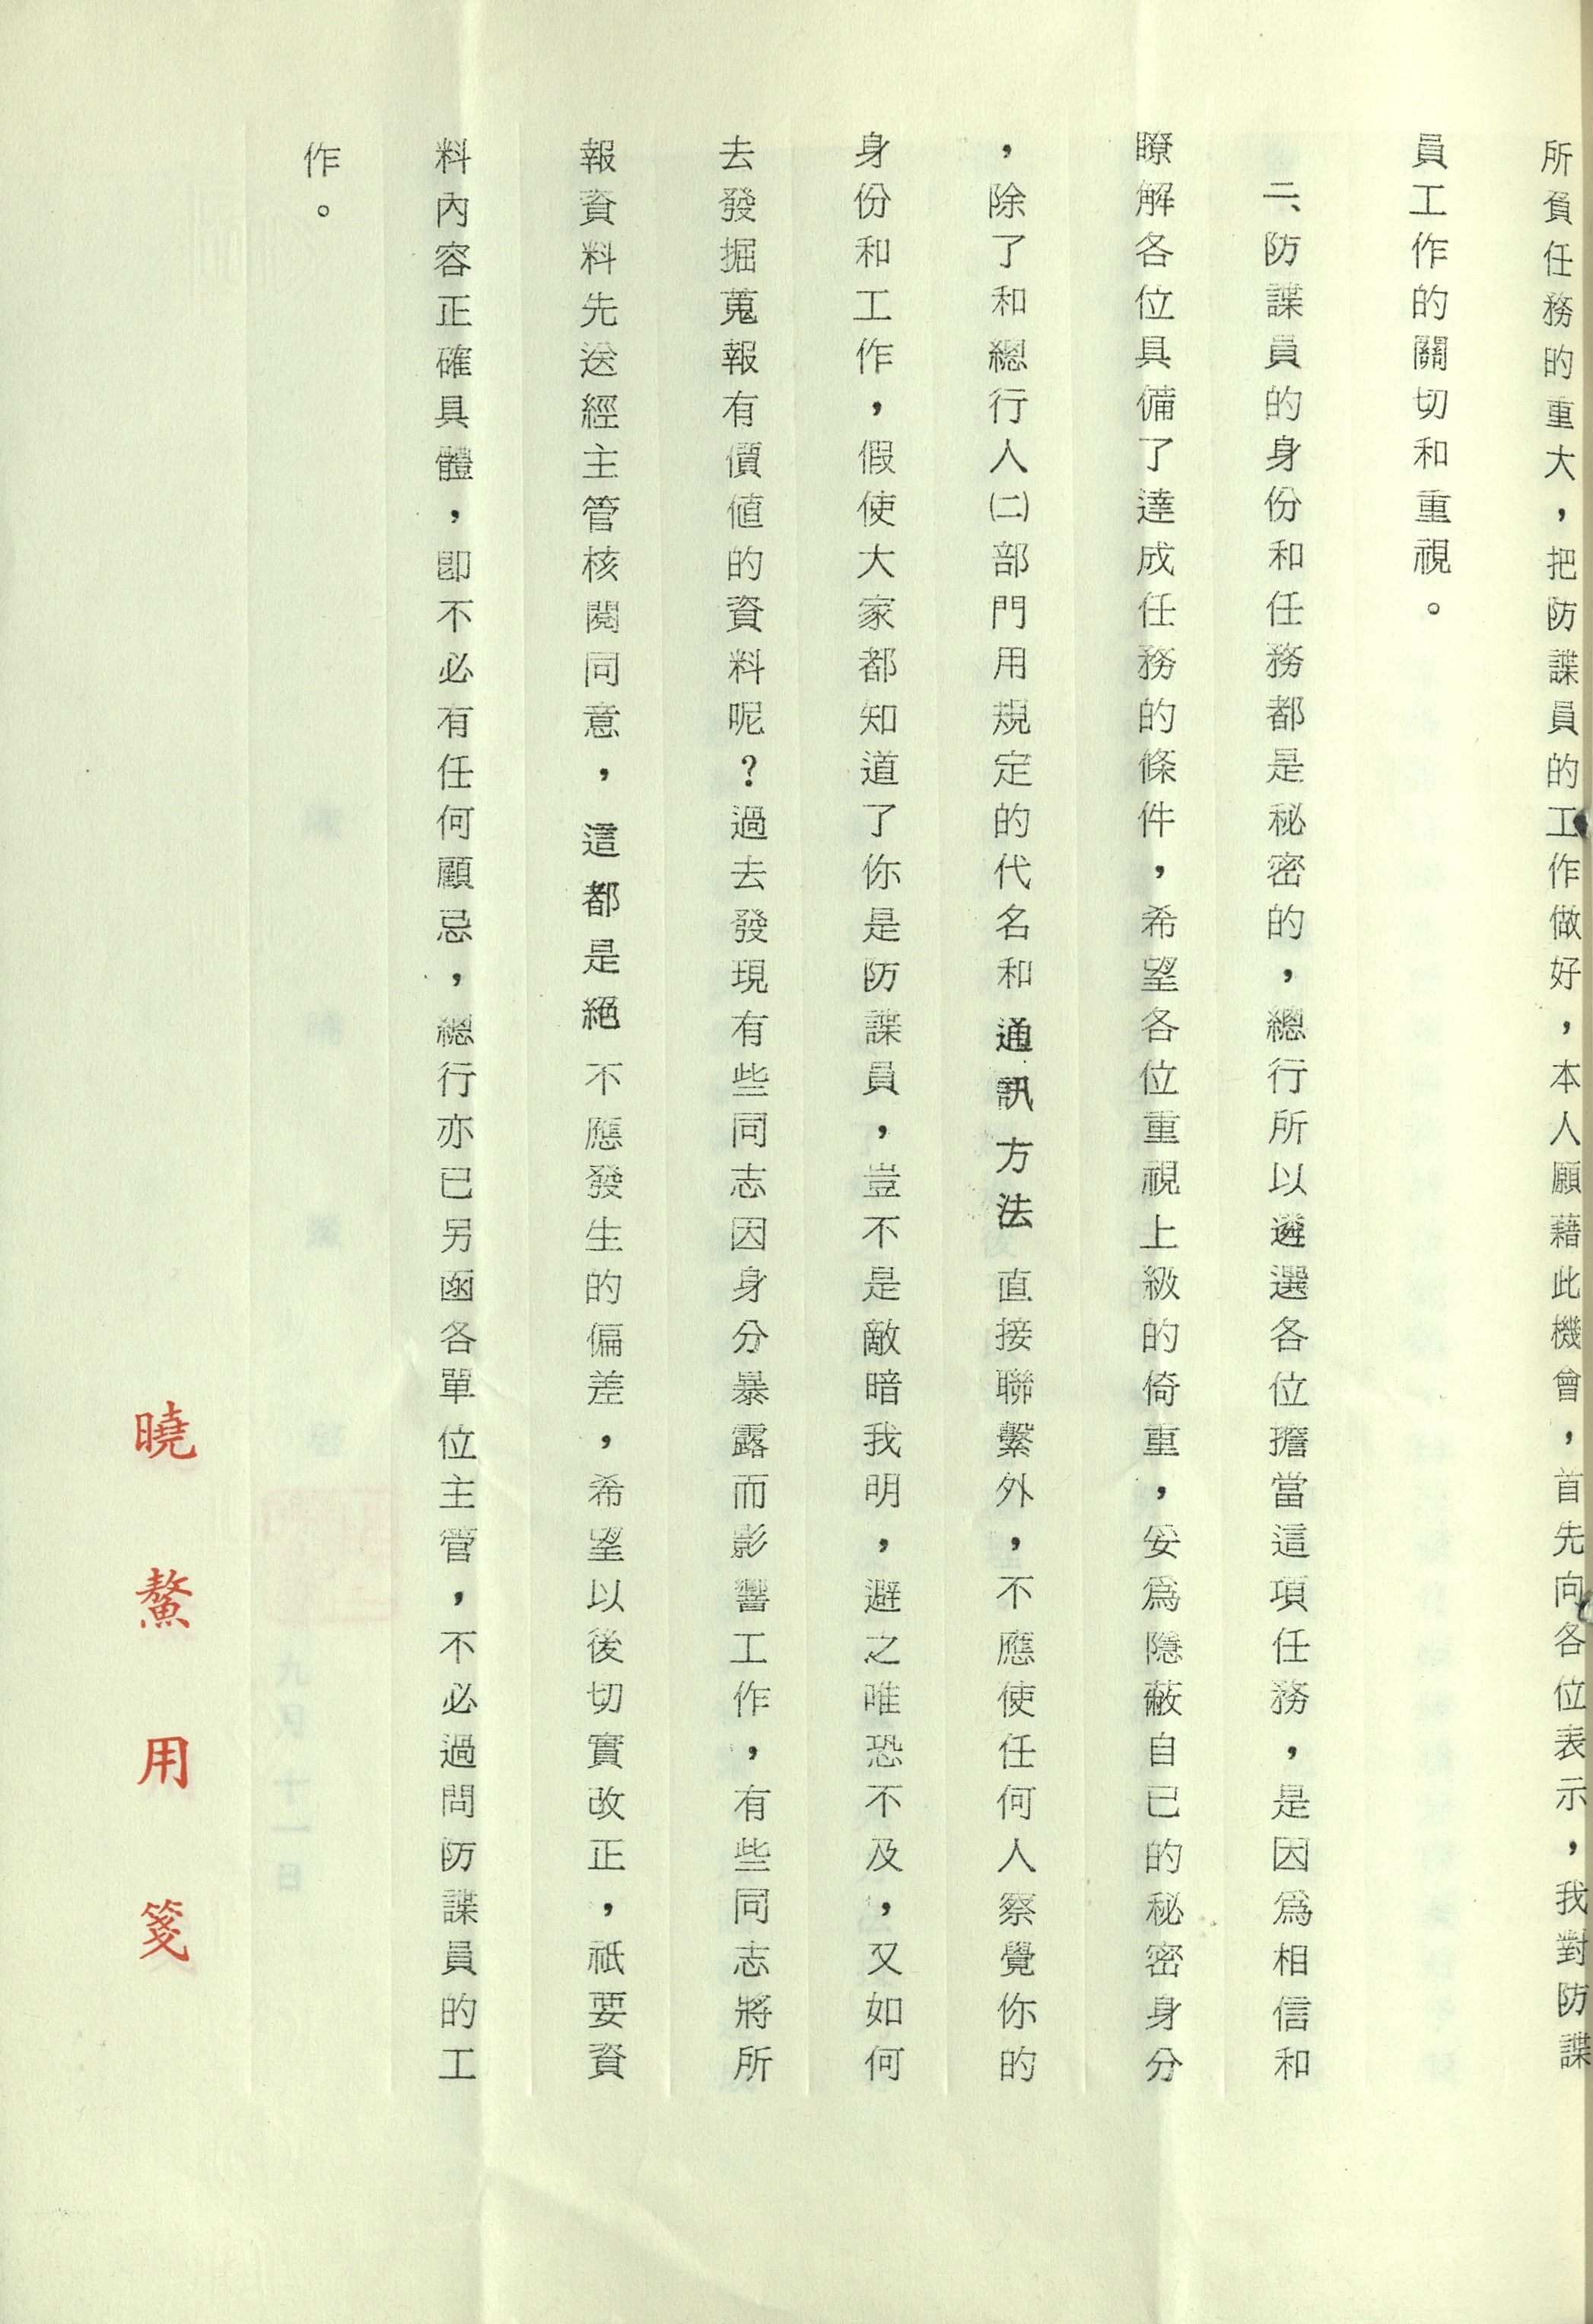 所負任務的重大，把防諜員的工作做好，本人願藉此機會，首先向各位表示，我對防諜
員工作的關切和重視。
二、防諜員的身份和任務都是秘密的，總行所以遴選各位擔當這項任務，是因為相信和
瞭解各位具備了達成任務的條件，希望各位重視上級的倚重，妥為隱蔽自己的秘密身分
，除了和總行人㈡部門用規定的代名和通訊方法直接聯繫外，不應使任何人察覺你的
身份和工作，假使大家都知道了你是防諜員，豈不是敵暗我明，避之唯恐不及，又如何
去發掘蒐報有價值的資料呢？過去發現有些同志因身分暴露而影響工作，有些同志將所
報資料先送經主管核閱同意，這都是絕不應發生的偏差，希望以後切實改正，祇要資
料內容正確具體，即不必有任何顧忌，總行亦已另函各單位主管，不必過問防諜員的工
作。
曉鰲用箋
九月十一日